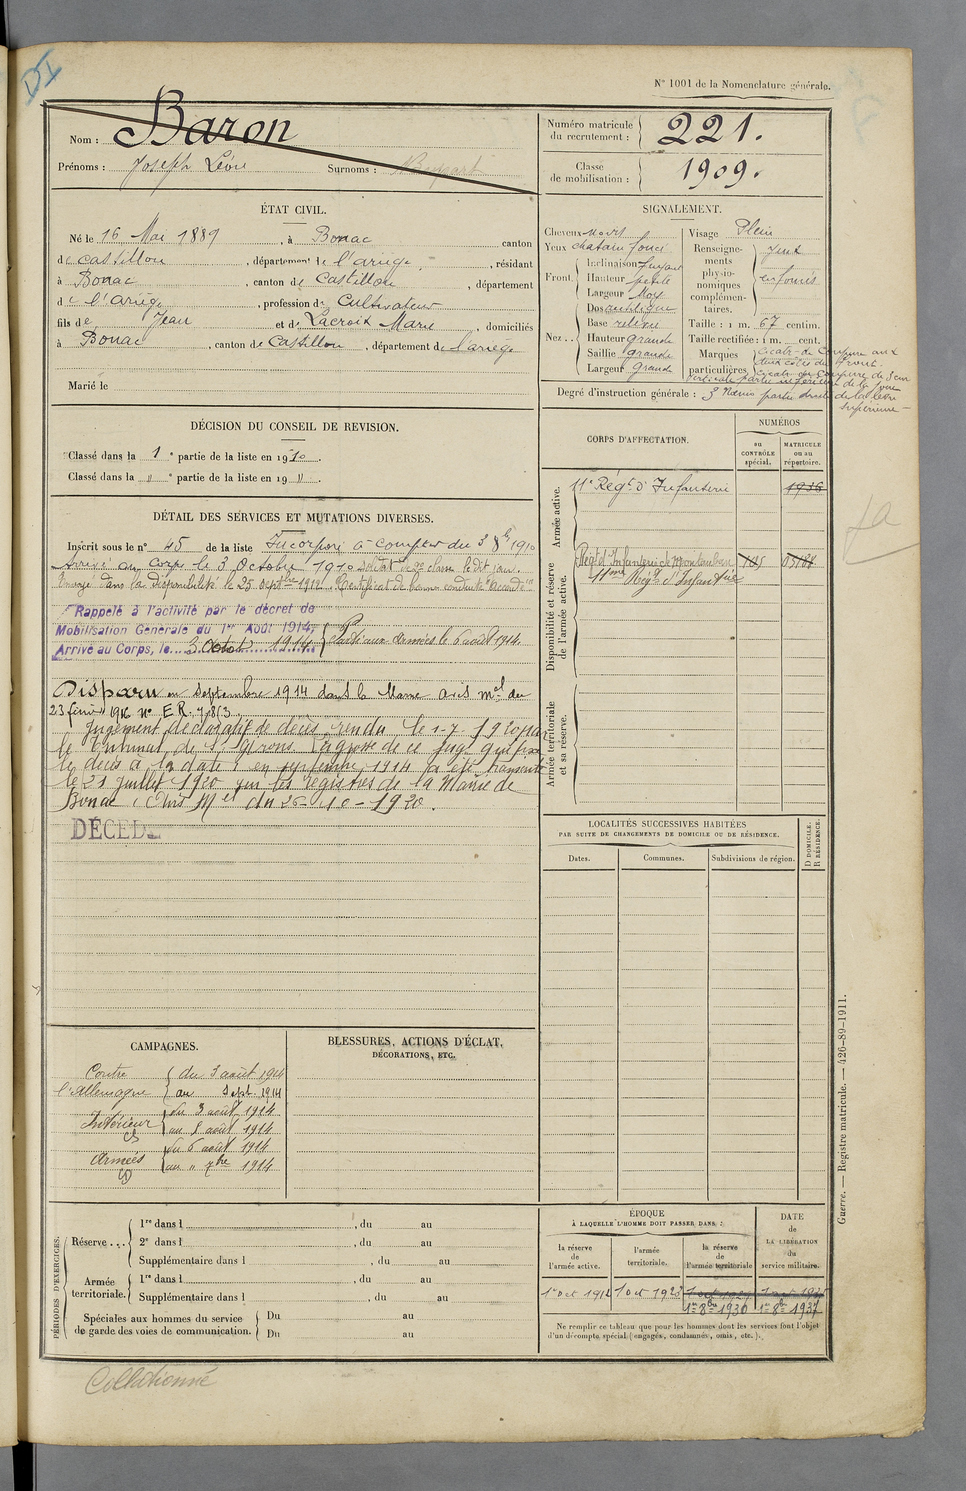 DI
N° 1001 de la Nomenclature générale.
Nom : Baron
Prénoms : Joseph Léon Surnoms :
Numéro matricule du recrutement : 221.
Classe de mobilisation : 1909.
ÉTAT CIVIL.
Né le 16 Mai 1889, à Bonac canton
de Castillon, département de l'ariège, résidant
à Bonac, canton de Castillon, département
de l'ariège, profession de Cultivateur
fils de Jean et de Lacroix Marie, domiciliés
à Bonac, canton de Castillon, département de l'ariège
Marié le
SIGNALEMENT.
Cheveux noirs
Yeux chatain foncé
Front. Inclinaison fuyant
Hauteur petite
Largeur Moy
Nez... Dos rectiligne
Base relevée
Hauteur grande
Saillie grande
Largeur grande
Visage Plein
Renseignements physionomiques complémentaires. yeux enfoncés
Taille : 1 m. 67 centim.
Taille rectifiée : 1 m. cent.
Marques particulières Cicatr. de Coupure aux
deux côtés du front.
Cicatr. de Coupure de 3 cm
verticale partie inférieure de la joue
partie droite de la lèvre
supérieure
Degré d'instruction générale : 3
DÉCISION DU CONSEIL DE REVISION.
Classé dans la 1e partie de la liste en 1910.
Classé dans la " e partie de la liste en 19 ".
DÉTAIL DES SERVICES ET MUTATIONS DIVERSES.
Inscrit sous le n° 45 de la liste Incorporé à compter du 3 8bre 1910
Arrivé au Corps le 3 Octobre 1910 Soldat de 2e classe le dit jour.
Envoyé dans la disponibilité le 25 septbre 1912. Certificat de bonne conduite "accordé"
Rappelé à l'activité par le décret de
Mobilisation Générale du 1er Août 1914.
Arrivé au Corps, le 3 1914 Parti aux armées le 6 août 1914.
Disparu en septembre 1914 dans la Marne avis mel du
23 février 1916 n° E.R. 7.813
Jugement déclaratif de décès rendu le 1-7-1920 par
le tribunal de St Girons. La grosse de ce jugt qui fixe
le décès à la date : en septembre 1914 a été transcrite
le 21 juillet 1920 sur les registres de la Mairie de
Bonac. Avis Mel du 26-10-1920.
DÉCÉDÉ
CORPS D'AFFECTATION.
NUMÉROS
au CONTRÔLE spécial.
MATRICULE ou au répertoire.
Armée active.
11e Régt d'Infanterie 1936
Disponibilité et réserve de l'armée active.
Régt d'Infanterie de Montauban
11ème Régt d'Infanterie
Armée territoriale et sa réserve.
LOCALITÉS SUCCESSIVES HABITÉES
PAR SUITE DE CHANGEMENTS DE DOMICILE OU DE RÉSIDENCE.
Dates. Communes. Subdivisions de région. D DOMICILE. R RÉSIDENCE.
CAMPAGNES.
Contre l'Allemagne du 3 août 1914
au Sept. 1914
Intérieur du 3 août 1914
au 5 août 1914
Armées du 6 août 1914
au " 7bre 1914
BLESSURES, ACTIONS D'ÉCLAT, DÉCORATIONS, ETC.
PÉRIODES D'EXERCICES.
Réserve... 1re dans l , du au
2e dans l , du au
Supplémentaire dans l , du au
Armée territoriale. 1re dans l , du au
Supplémentaire dans l , du au
Spéciales aux hommes du service de garde des voies de communication. Du au
Du au
ÉPOQUE
À LAQUELLE L'HOMME DOIT PASSER DANS :
la réserve de l'armée active.
l'armée territoriale.
la réserve de l'armée territoriale
DATE de LA LIBÉRATION du service militaire.
1er oct 1912 1 oct 1923
1er 8bre 1930 1er 8bre 1937
Ne remplir ce tableau que pour les hommes dont les services font l'objet
d'un décompte spécial (engagés, condamnés, omis, etc.).
Guerre. — Registre matricule. — 426-89-1911.
Collationné